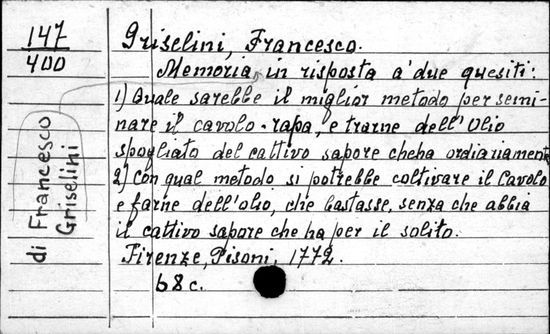 147
400
Griselini, Francesco.
Memoria, in risposta a' due quesiti:
1) Quale sarebbe il miglior metodo per semi-
nare il cavolo-rapa, e trarne dell'Olio
spogliato del cattivo sapore cheha ordiariamente
2) Con qual metodo si potrebbe coltivare il Cavolo
e farne dell'olio, che bastasse, senza che abbia
il cattivo sapore che ha per il solito.
Firenze, Pisoni, 1772.
68 c.
di Francesco
Griselini